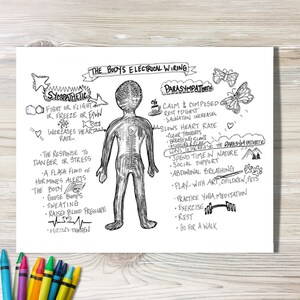 THE BODY'S ELECTRICAL WIRING
SYMPATHETIC
FIGHT OR FLIGHT
OR FREEZE OR FAWN
INCREASES HEART
RATE
• THE RESPONSE TO
DANGER OR STRESS
• A FLASH FLOOD OF
HORMONES ALERTS
THE BODY
• GOOSE BUMPS
• SWEATING
• RAISED BLOOD PRESSURE
PARASYMPATHETIC
CALM & COMPOSED
REST & DIGEST
SALIVATION INCREASES
SLOWS HEART RATE
• SPEND TIME IN NATURE
• SOCIAL SUPPORT
• ABDOMINAL BREATHING
• PLAY - WITH ART, CHILDREN, PETS
• PRACTICE YOGA/MEDITATION
• EXERCISE
• REST
• GO FOR A WALK